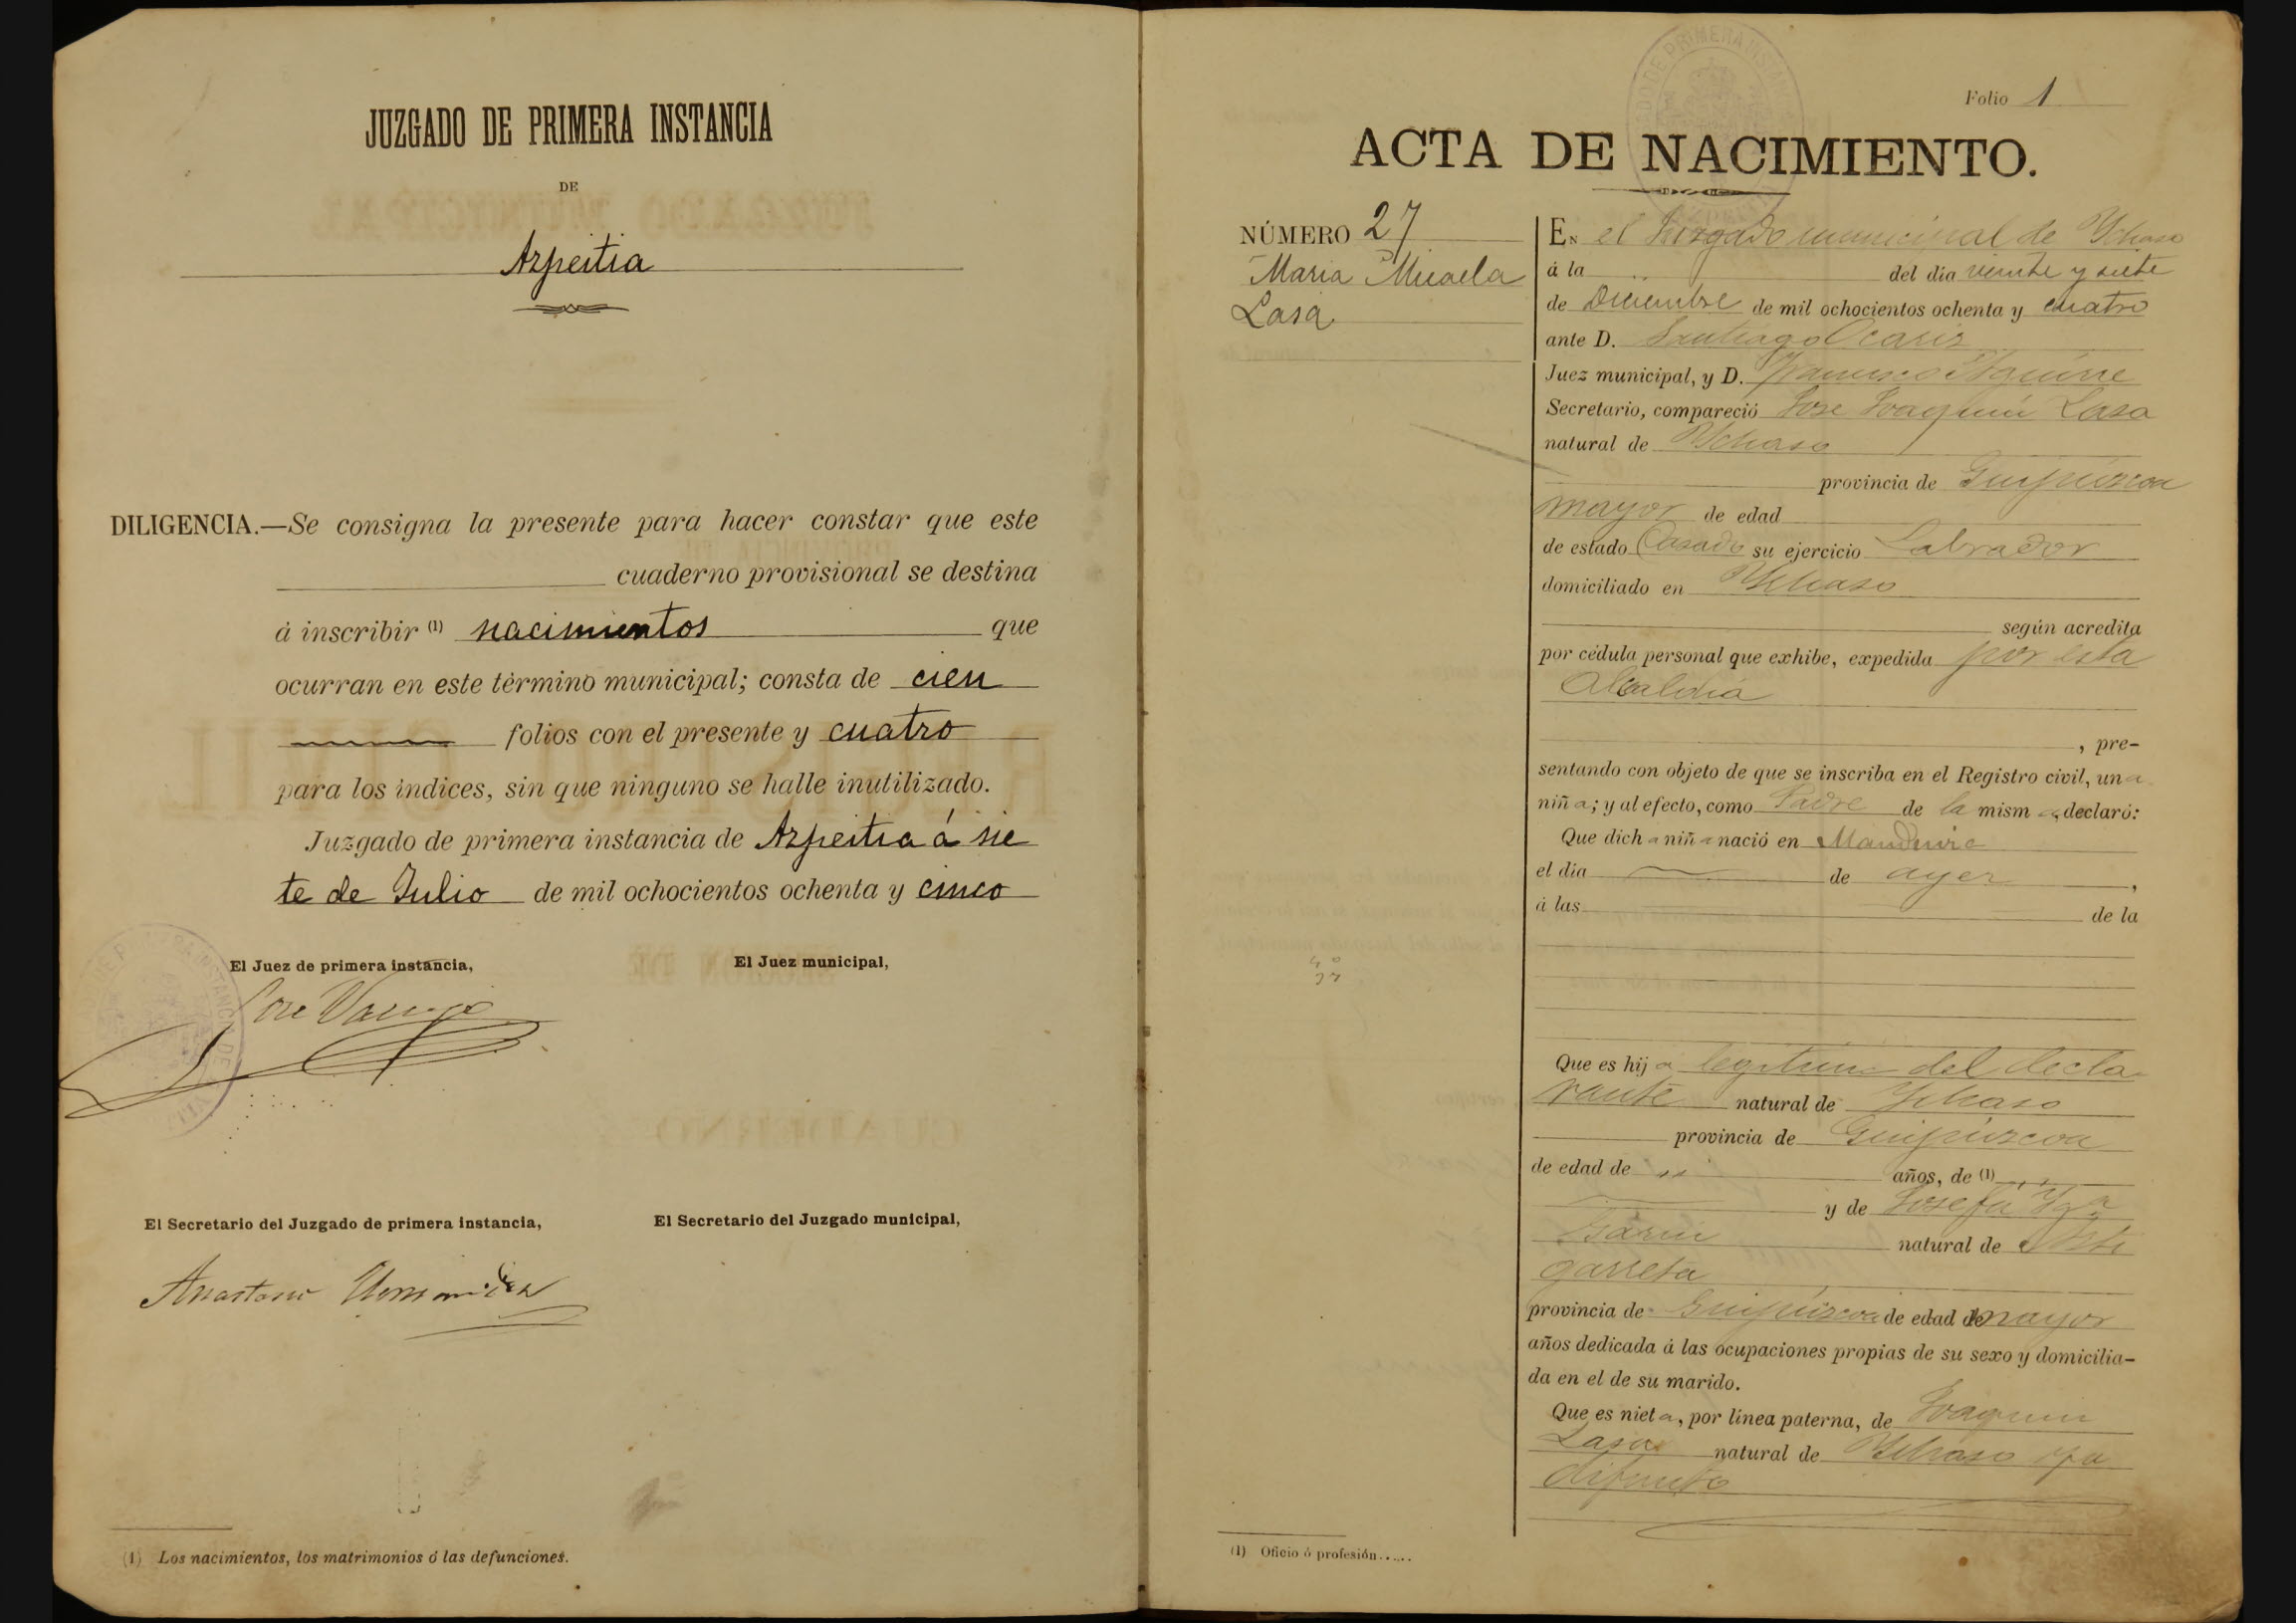 JUZGADO DE PRIMERA INSTANCIA
DE
Azpeitia
DILIGENCIA.—Se consigna la presente para hacer constar que este
cuaderno provisional se destina
á inscribir (1) nacimientos que
ocurran en este término municipal; consta de cien
folios con el presente y cuatro
para los índices, sin que ninguno se halle inutilizado.
Juzgado de primera instancia de Azpeitia á sie
te de Julio de mil ochocientos ochenta y cinco
El Juez de primera instancia,
El Juez municipal,
Jose
El Secretario del Juzgado de primera instancia,
El Secretario del Juzgado municipal,
(1) Los nacimientos, los matrimonios ó las defunciones.
Folio 1
ACTA DE NACIMIENTO.
NÚMERO 27
Maria Micaela
Lasa
En el Juzgado municipal de Ychaso
á la del dia veinte y siete
de Diciembre de mil ochocientos ochenta y cuatro
ante D. Santiago Ocariz
Juez municipal, y D. Francisco Aguirre
Secretario, compareció Jose Joaquin Lasa
natural de Ychaso
provincia de Guipúzcoa
mayor de edad
de estado Casado su ejercicio Labrador
domiciliado en Ychaso
según acredita
por cédula personal que exhibe, expedida por esta
Alcaldia
, pre-
sentando con objeto de que se inscriba en el Registro civil, una
niña; y al efecto, como Padre de la misma declaró:
Que dicha niña nació en
el dia de ayer,
á las de la
Que es hija legitima del decla
rante natural de Ychaso
provincia de Guipúzcoa
de edad de años, de (1)
y de Josefa Yga
natural de Asti
garreta
provincia de Guipúzcoa de edad de mayor
años dedicada á las ocupaciones propias de su sexo y domicilia-
da en el de su marido.
Que es nieta, por línea paterna, de Joaquin
Lasa natural de Ychaso ya
difunto
(1) Oficio ó profesión......